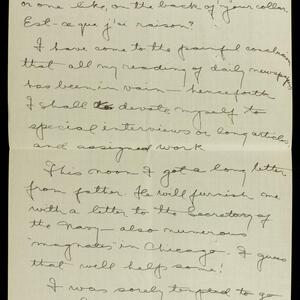 or one like, on the back of your collar.
Est-ce que j'ai raison?
I have come to the painful conclusion
that all my reading of daily newspapers
has been in vain - henceforth
I shall devote myself to
special interviews or long articles
and assigned work
This noon I got a long letter
from father. He will furnish me
with a letter to the Secretary of
the Navy - also numerous
"magnates" in Chicago. I guess
that will help some!
I was sorely tempted to go